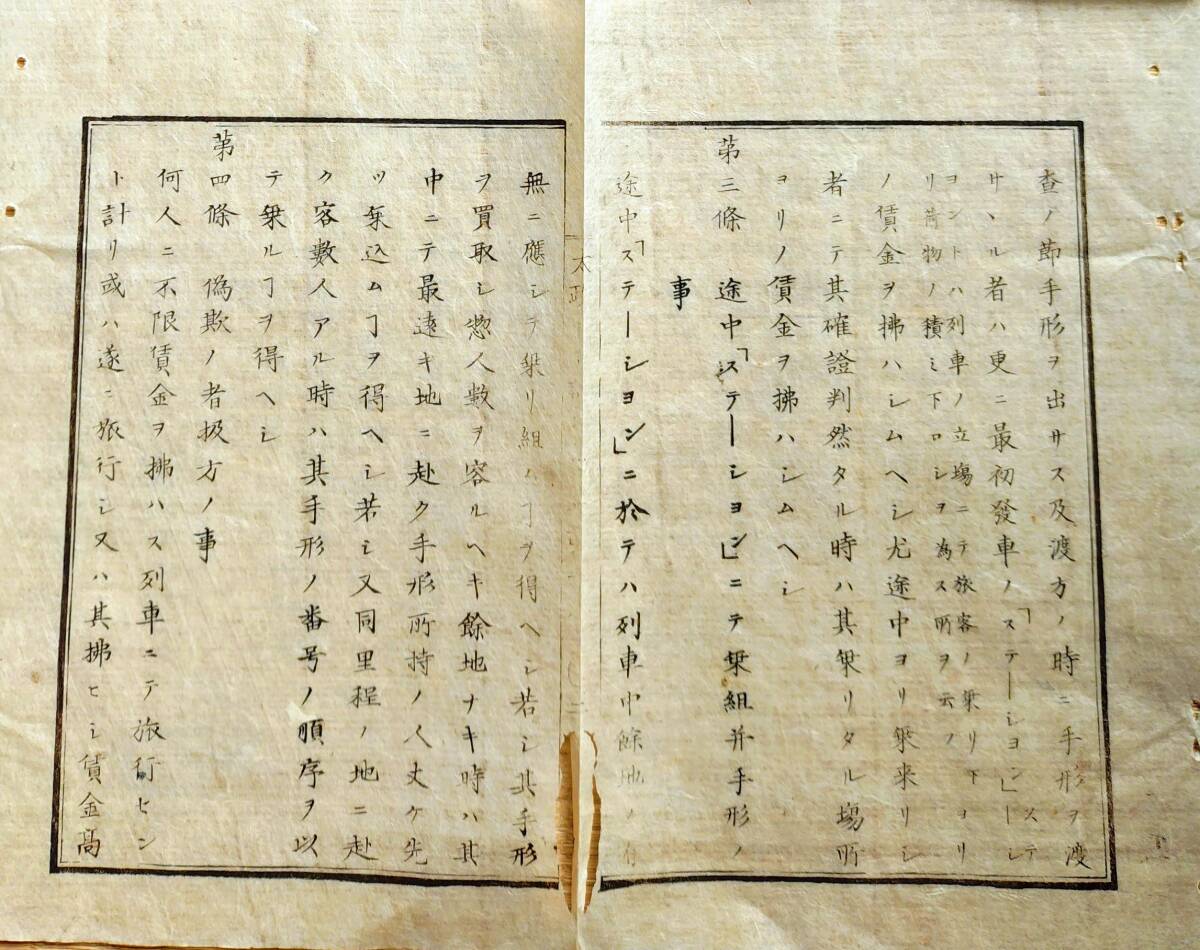 査ノ節手形ヲ出サス及渡方ノ時ニ手形ヲ渡
サヽル者ハ更ニ最初發車ノ「ステーション」ステーシ
ヨントハ列車ノ立塲ニテ旅客ノ乗リ下ヨリ
リ荷物ノ積ミ下ロシヲ為ス所ヲ云ノ
ノ賃金ヲ拂ハシムヘシ尤途中ヨリ乗来リシ
者ニテ其確證判然タル時ハ其乗リタル塲所
ヨリノ賃金ヲ拂ハシムヘシ
第三條　途中「ステーシヨン」ニテ乗組并手形ノ
事
途中「ステーシヨン」ニ於テハ列車中餘地ノ有
無ニ應シテ乗リ組ムヿヲ得ヘシ若シ其手形
ヲ買取シ惣人數ヲ容ルヘキ餘地ナキ時ハ其
中ニテ最遠キ地ニ赴ク手形所持ノ人丈ケ先
ツ乗込ムヿヲ得ヘシ若シ又同里程ノ地ニ赴
ク容數人アル時ハ其手形ノ番号ノ順序ヲ以
テ乗ルヿヲ得ヘシ
第四條　偽欺ノ者扱方ノ事
何人ニ不限賃金ヲ拂ハス列車ニテ旅行セン
ト計リ或ハ遂ニ旅行シ又ハ其拂ヒシ賃金高
太政